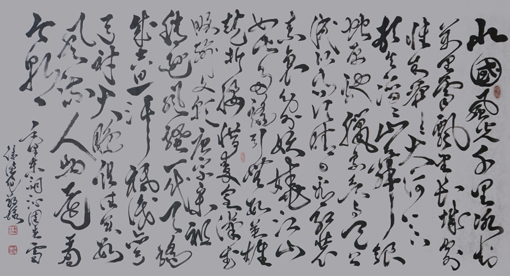 北國風光千里冰封
萬里雪飄望長城內外
惟餘莽莽大河上下
頓失滔滔山舞銀
蛇原馳蠟象欲與天公
試比高須晴日看紅裝
素裹分外妖嬈江山
如此多嬌引無數英雄
競折腰惜秦皇漢武
略輸文采唐宗宋祖
稍遜風騷一代天驕
成吉思汗只識彎
弓射大雕俱往矣數
風流人物還看
今朝
毛澤東詞沁園春雪